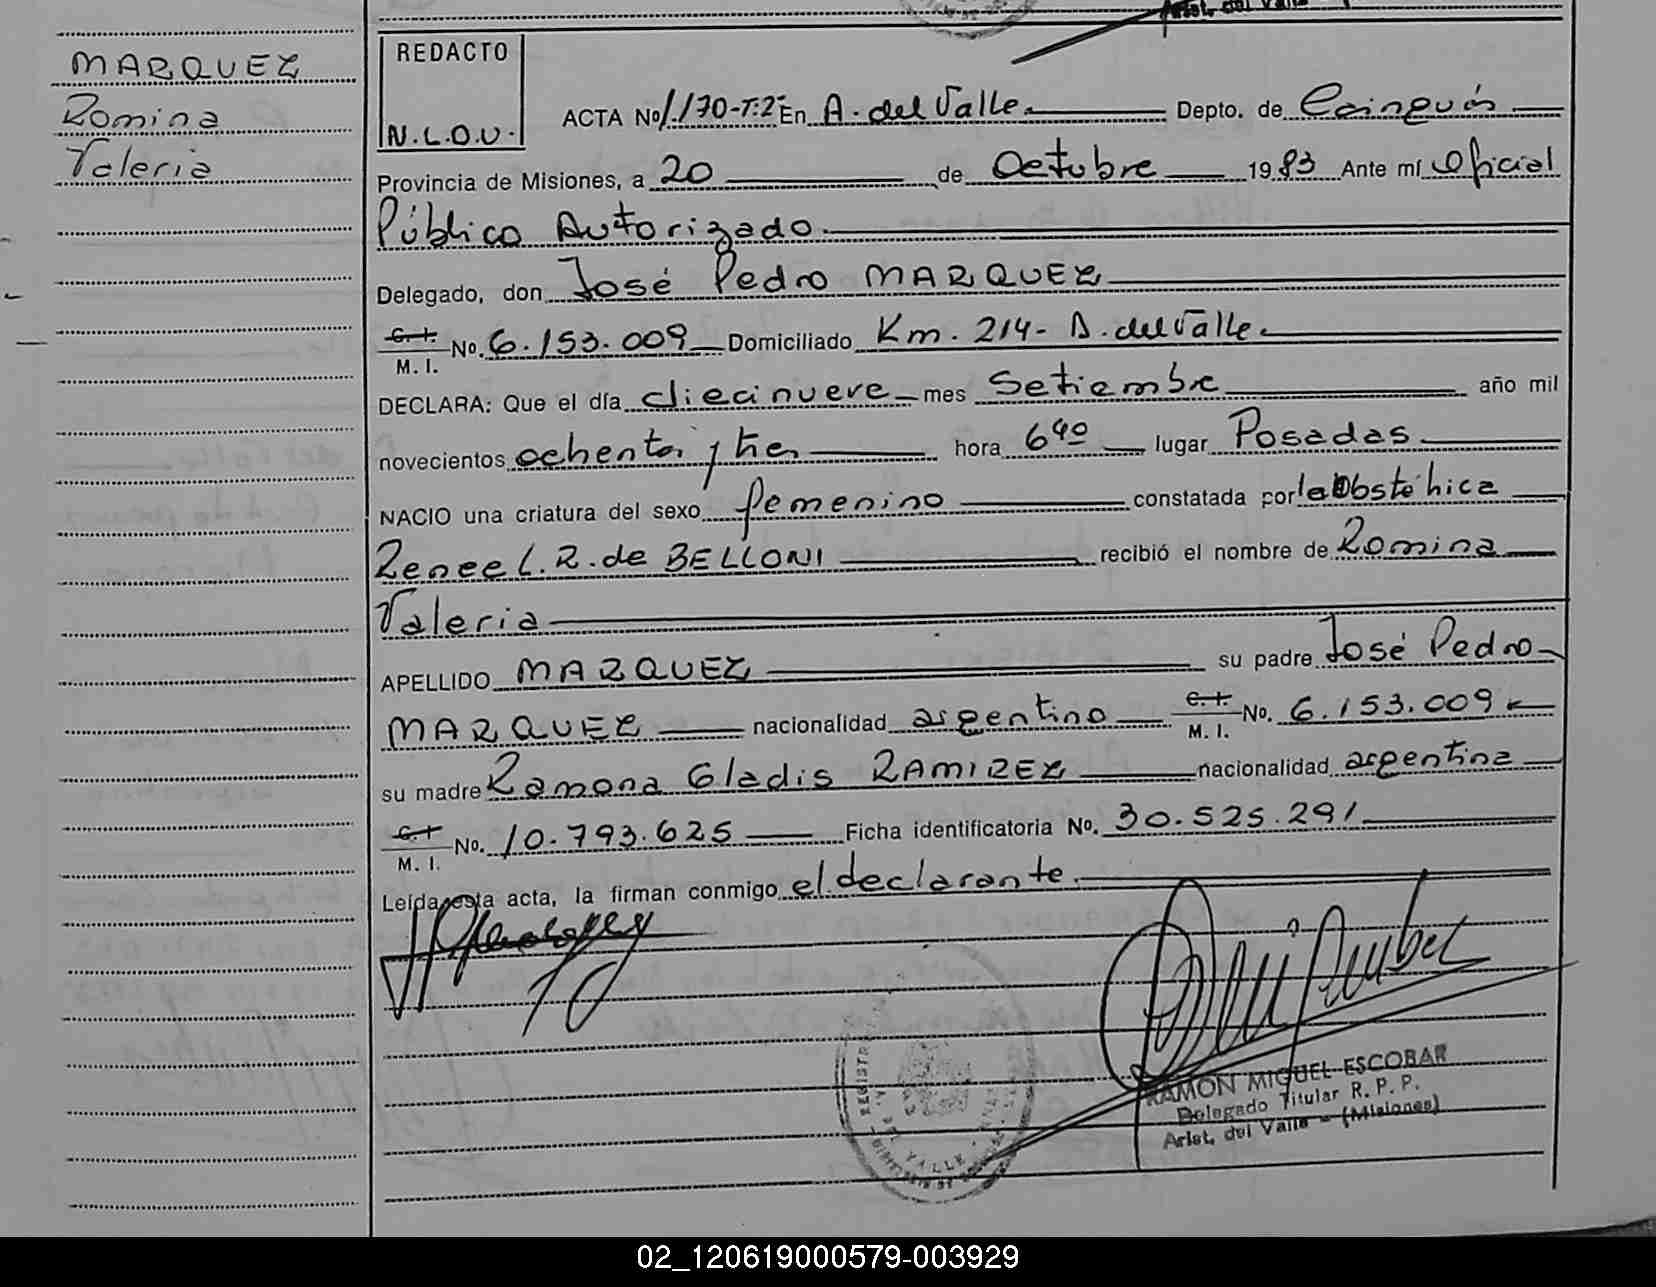 Arist. del Valle
MARQUEZ
Romina
Valeria
REDACTO
N.L.O.U.
ACTA No 1.170-T:2º En A. del Valle. Depto. de Cainguás
Provincia de Misiones, a 20 de Octubre 1983 Ante mí Oficial
Público Autorizado.
Delegado, don José Pedro MARQUEZ
C. I. M. I. No. 6.153.009 Domiciliado Km. 214- A. del Valle.
DECLARA: Que el día diecinueve mes Setiembre año mil
novecientos ochenta y tres hora 6⁴⁰ lugar Posadas
NACIO una criatura del sexo femenino constatada por la Obstétrica
Renee L. R. de BELLONI recibió el nombre de Romina
Valeria
APELLIDO MARQUEZ su padre José Pedro
MARQUEZ nacionalidad argentino C. I. M. I. No. 6.153.009
su madre Ramona Gladis RAMIREZ nacionalidad argentina
C. I. M. I. No. 10.793.625 Ficha identificatoria No. 30.525.291
Leída esta acta, la firman conmigo el declarante.
RAMON MIGUEL ESCOBAR
Delegado Titular R. P. P.
Arist. del Valle - (Misiones)
02_120619000579-003929